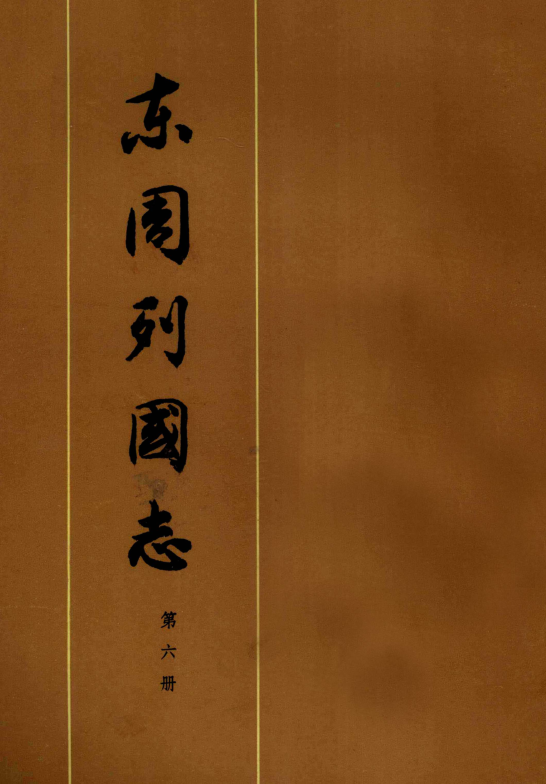 东周列國志
第六册